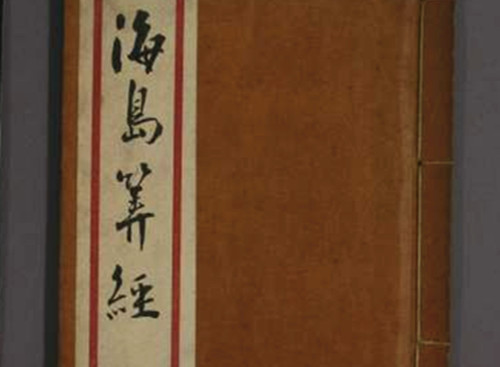 海島筭經